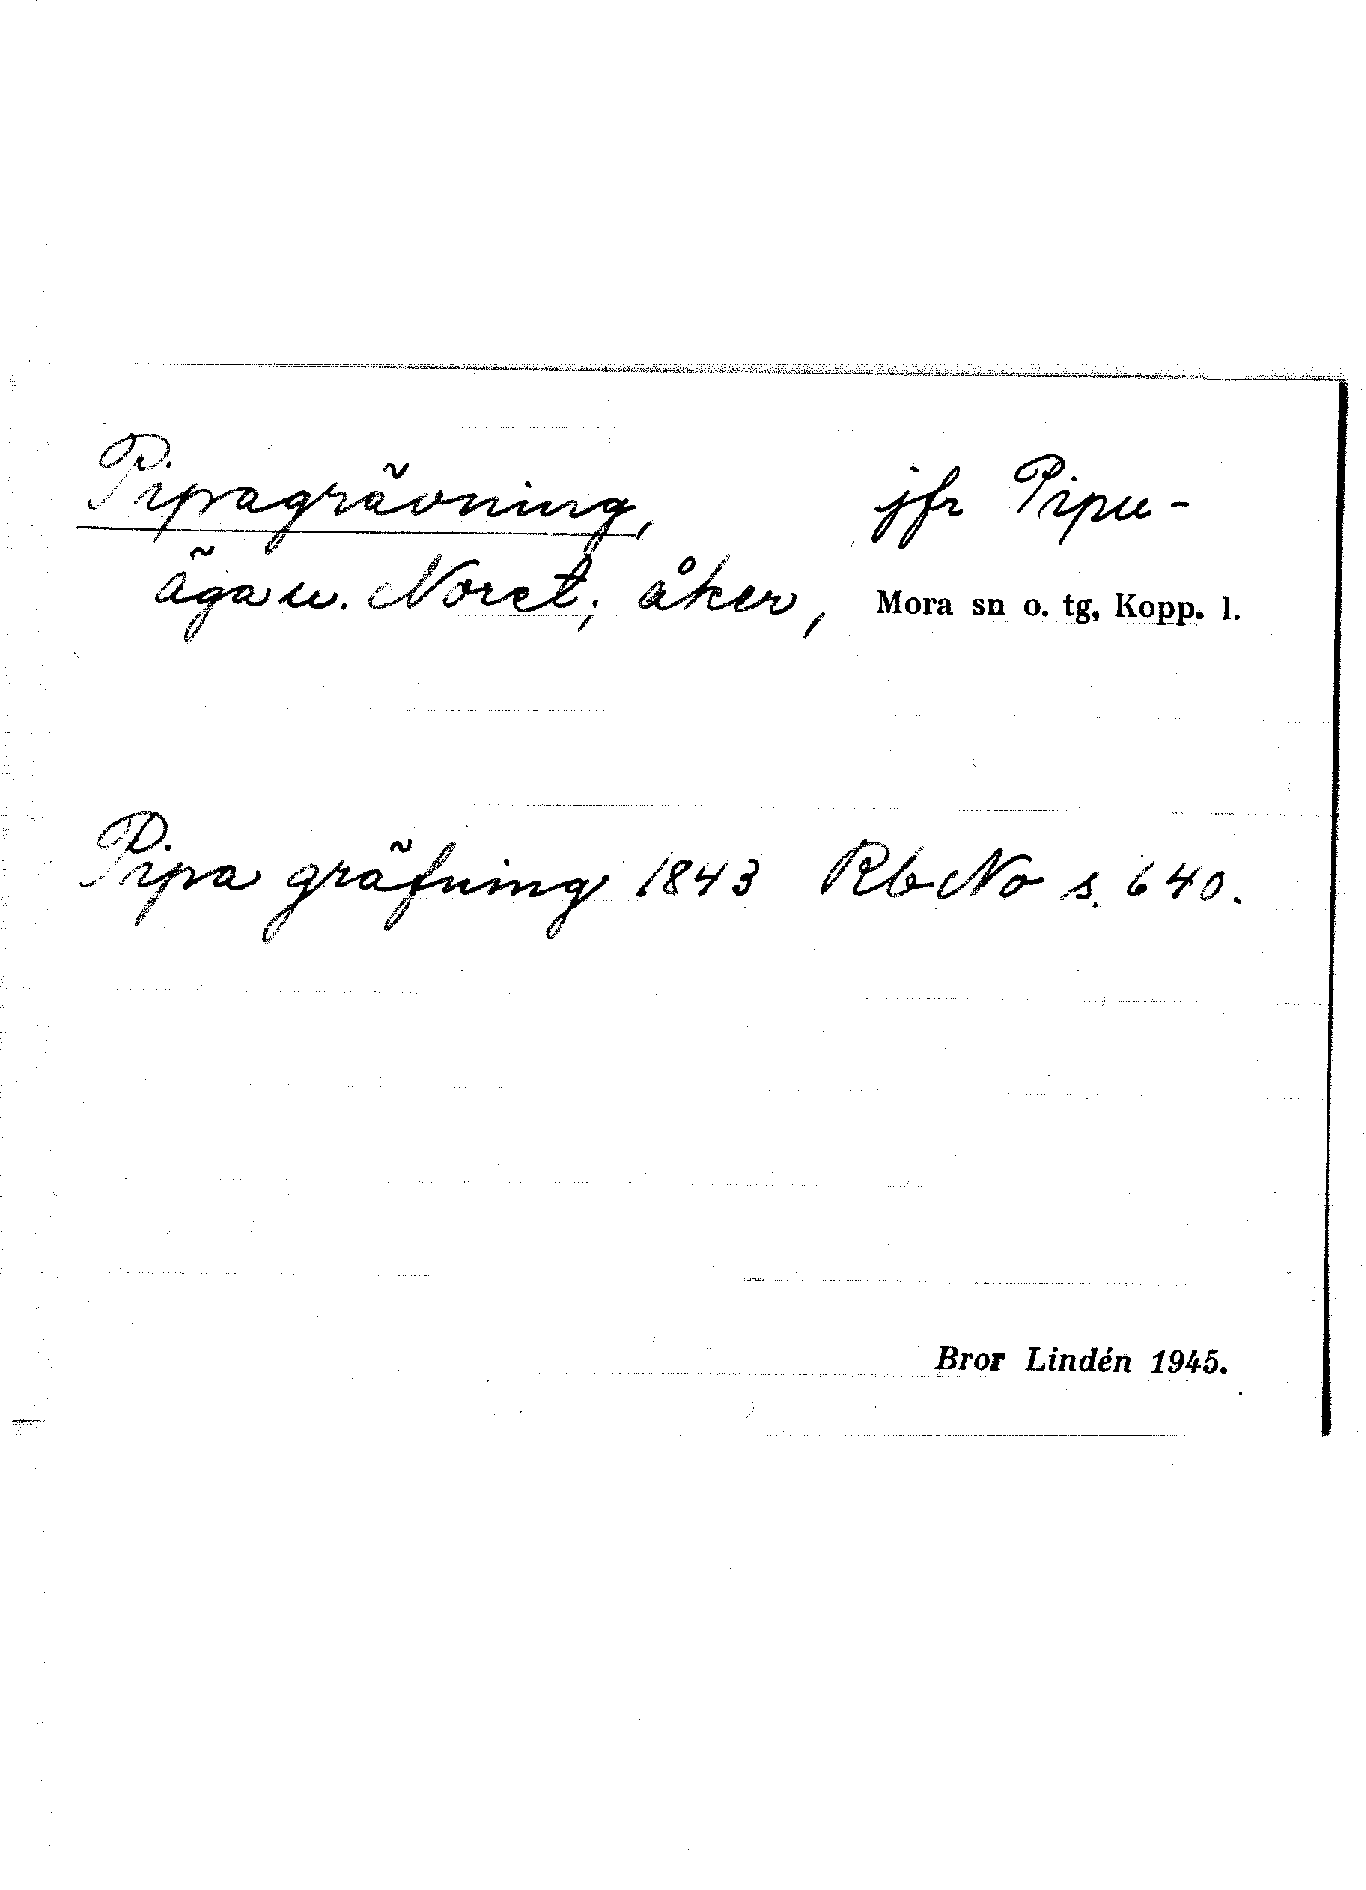 Pipagrävning, jfr Pipu-
ägau. Noret; åker, Mora sn o. tg, Kopp. l.
Pipa gräfning 1843 RbNo s. 640.
Bror Lindén 1945.